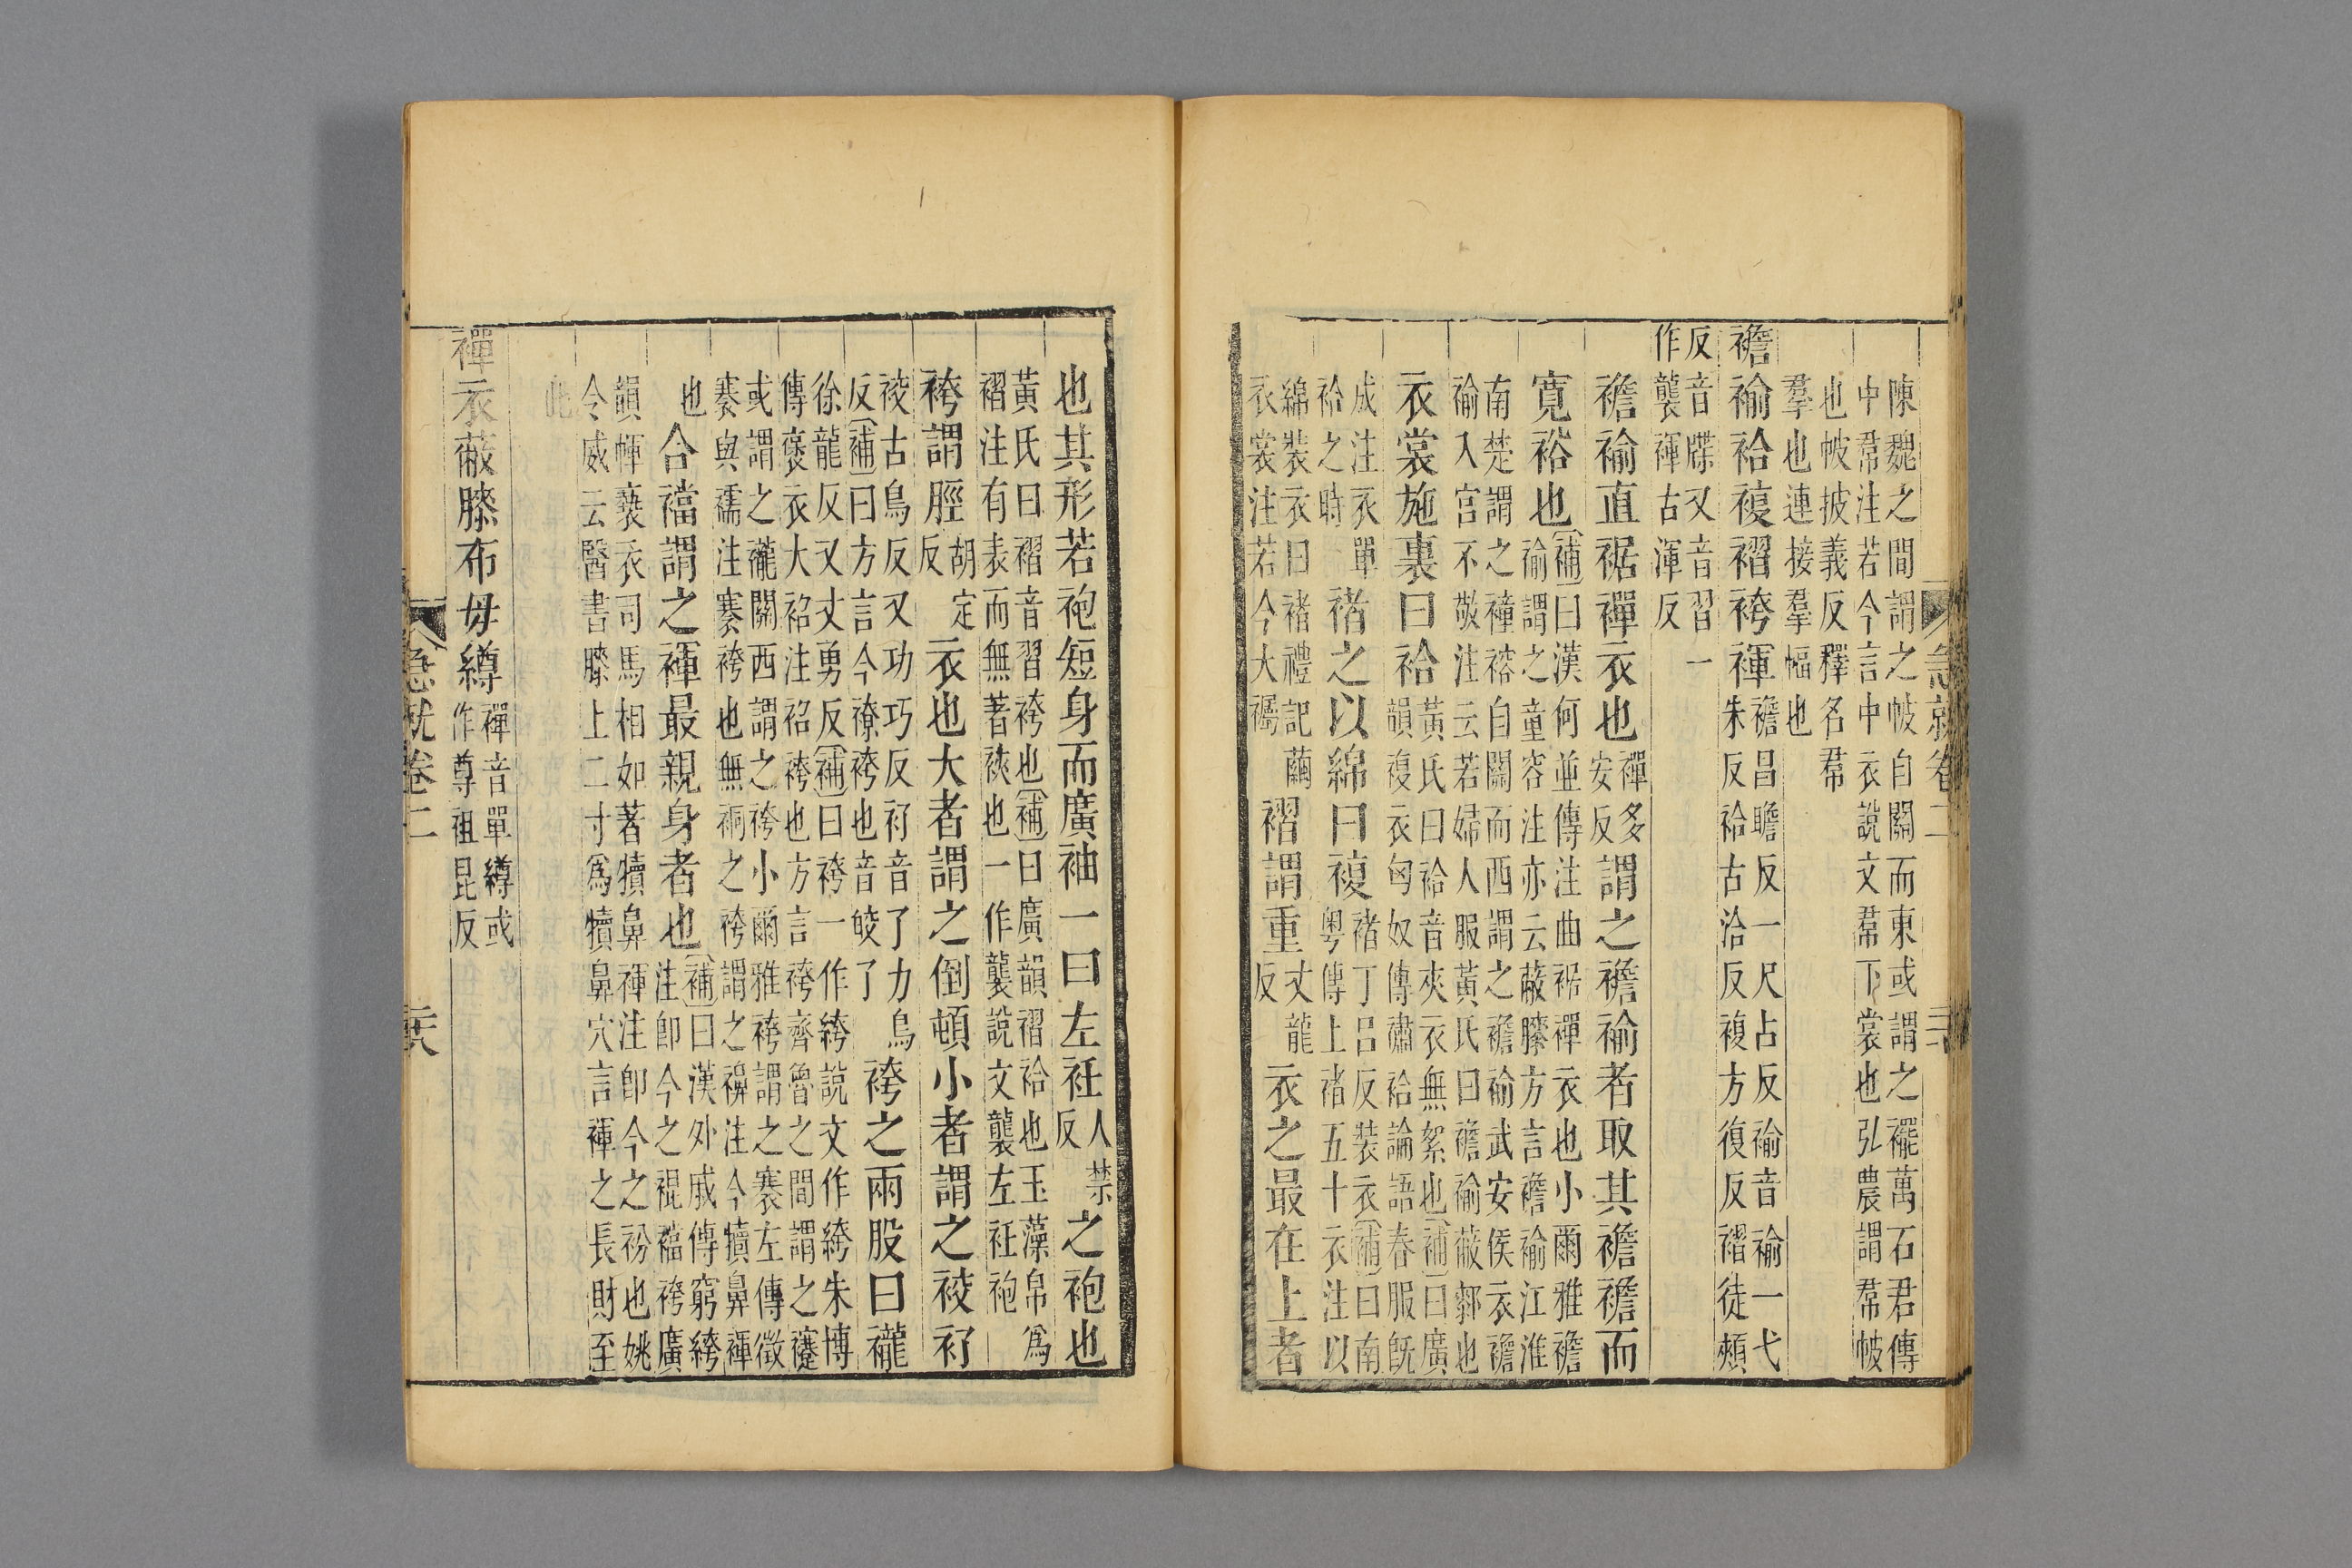 陳魏之間謂之帔自關而東或謂之襬萬石君傳
中帬注若今言中衣說文帬下裳也弘農謂帬帔
也帔披義反釋名帬
羣也連接羣幅也
襜褕袷複褶袴褌
襜昌瞻反一尺占反褕音褕一弋
朱反袷古洽反複方復反褶徒頰
反音牒又音習一
作襲褌古渾反
襜褕直裾襌衣也
襌多
安反
謂之襜褕者取其襜襜而
寬裕也
補曰漢何並傳注曲裾襌衣也小爾雅襜
褕謂之童容注亦云蔽膝方言襜褕江淮
南楚謂之𧝎褣自關而西謂之襜褕武安侯衣襜
褕入宮不敬注云若婦人服黃氏曰襜褕蔽郭也
衣裳施裏曰袷
黃氏曰袷音夾衣無絮也補曰廣
韻複衣匈奴傳繡袷論語春服旣
成注衣單
袷之時
褚之以綿曰複
褚丁呂反裝衣補曰南
粵傳上褚五十衣注以
綿裝衣曰褚禮記繭
衣裳注若今大䙱
褶謂重
丈龍
反
衣之最在上者
急就卷二
也其形若袍短身而廣袖一曰左衽
人禁
反
之袍也
黃氏曰褶音習袴也補曰廣韻褶袷也玉藻帛爲
褶注有表而無著裌也一作襲說文襲左衽袍
袴謂脛
胡定
反
衣也大者謂之倒頓小者謂之䘨䘥
䘨古鳥反又功巧反䘥音了力鳥
反補曰方言今䙪袴也音皎了
袴之兩股曰襱
徐龍反又丈勇反補曰袴一作絝說文作絝朱博
傳褒衣大袑注袑袴也方言袴齊魯之間謂之𧝑
或謂之襱關西謂之袴小爾雅袴謂之褰左傳徵
褰與襦注褰袴也無裥之袴謂之襣注今犢鼻褌
也
合襠謂之褌最親身者也
補曰漢外戚傳窮絝
注卽今之裩襠袴廣
韻㡓褻衣司馬相如著犢鼻褌注卽今之衳也姚
令威云醫書膝上二寸爲犢鼻穴言褌之長財至
此
襌衣蔽膝布母繜
襌音單繜或
作尊祖昆反
急就卷二